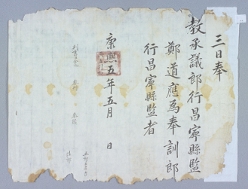 三日奉
敎承議郎行昌寧縣監
鄭道應爲奉訓郎
行昌寧縣監者
康熙五年五月　日